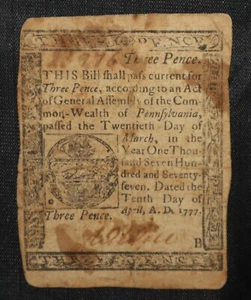 THREE PENCE.
Three Pence.
THIS Bill shall pass current for
Three Pence, according to an Act
of General Assembly of the Com-
mon-Wealth of Pennsylvania,
passed the Twentieth Day of
March, in the
Year One Thou-
sand Seven Hun-
dred and Seventy-
seven. Dated the
Tenth Day of
April, A. D. 1777.
Three Pence.
B